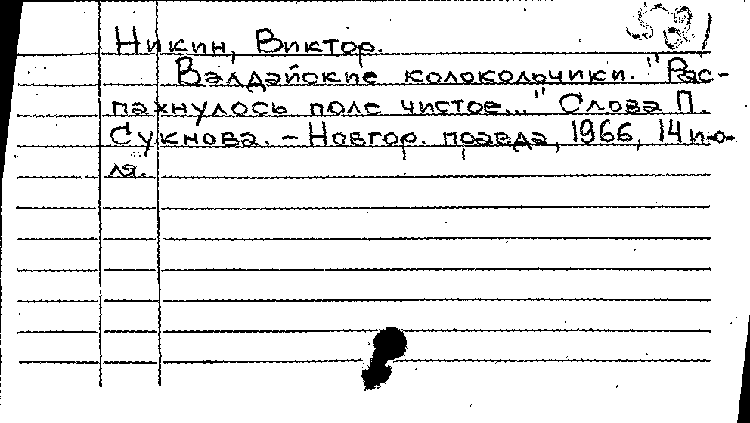 Никин, Виктор.
Валдайские колокольчики. "Рас-
пахнулось поле чистое..." Слова П.
Сукнова. – Новгор. правда, 1966, 14 ию-
ля.